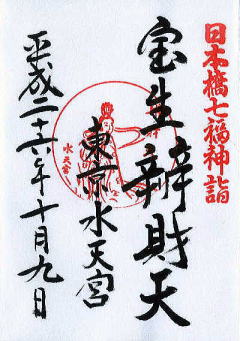 日本橋七福神詣
宝生辨財天
東京水天宮
水天宮
平成二十六年十月九日